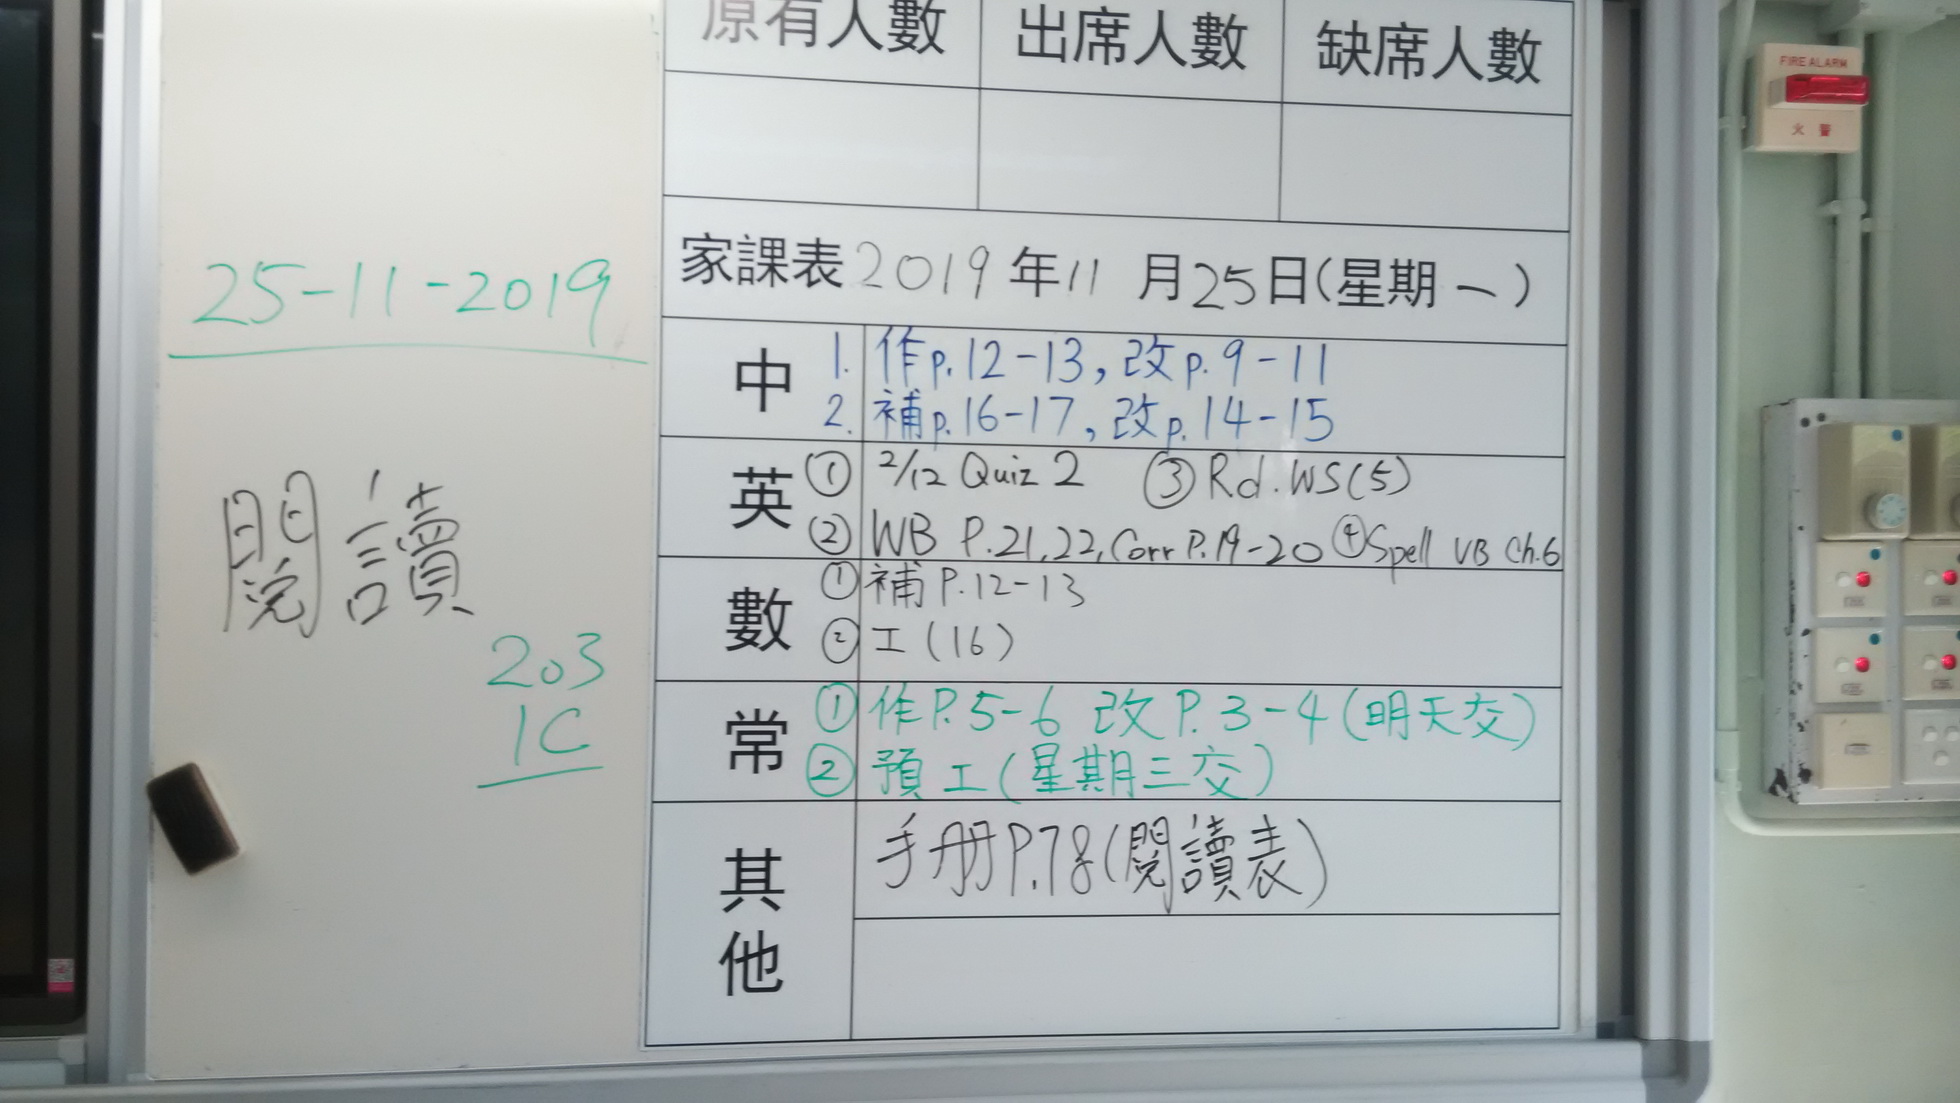 原有人數 出席人數 缺席人數
家課表2019年11月25日(星期一)
中 1. 作p.12-13,改p.9-11
2. 補p.16-17,改p.14-15
英 ① 2/12 Quiz 2 ③ Rd. WS(5)
② WB P.21,22, Corr P.19-20 ④ Spell VB Ch.6
數 ① 補P.12-13
② 工(16)
常 ① 作P.5-6 改P.3-4(明天交)
② 預工(星期三交)
其他 手册P.78(閱讀表)
25-11-2019
閱讀
203
1C
FIRE ALARM
火警